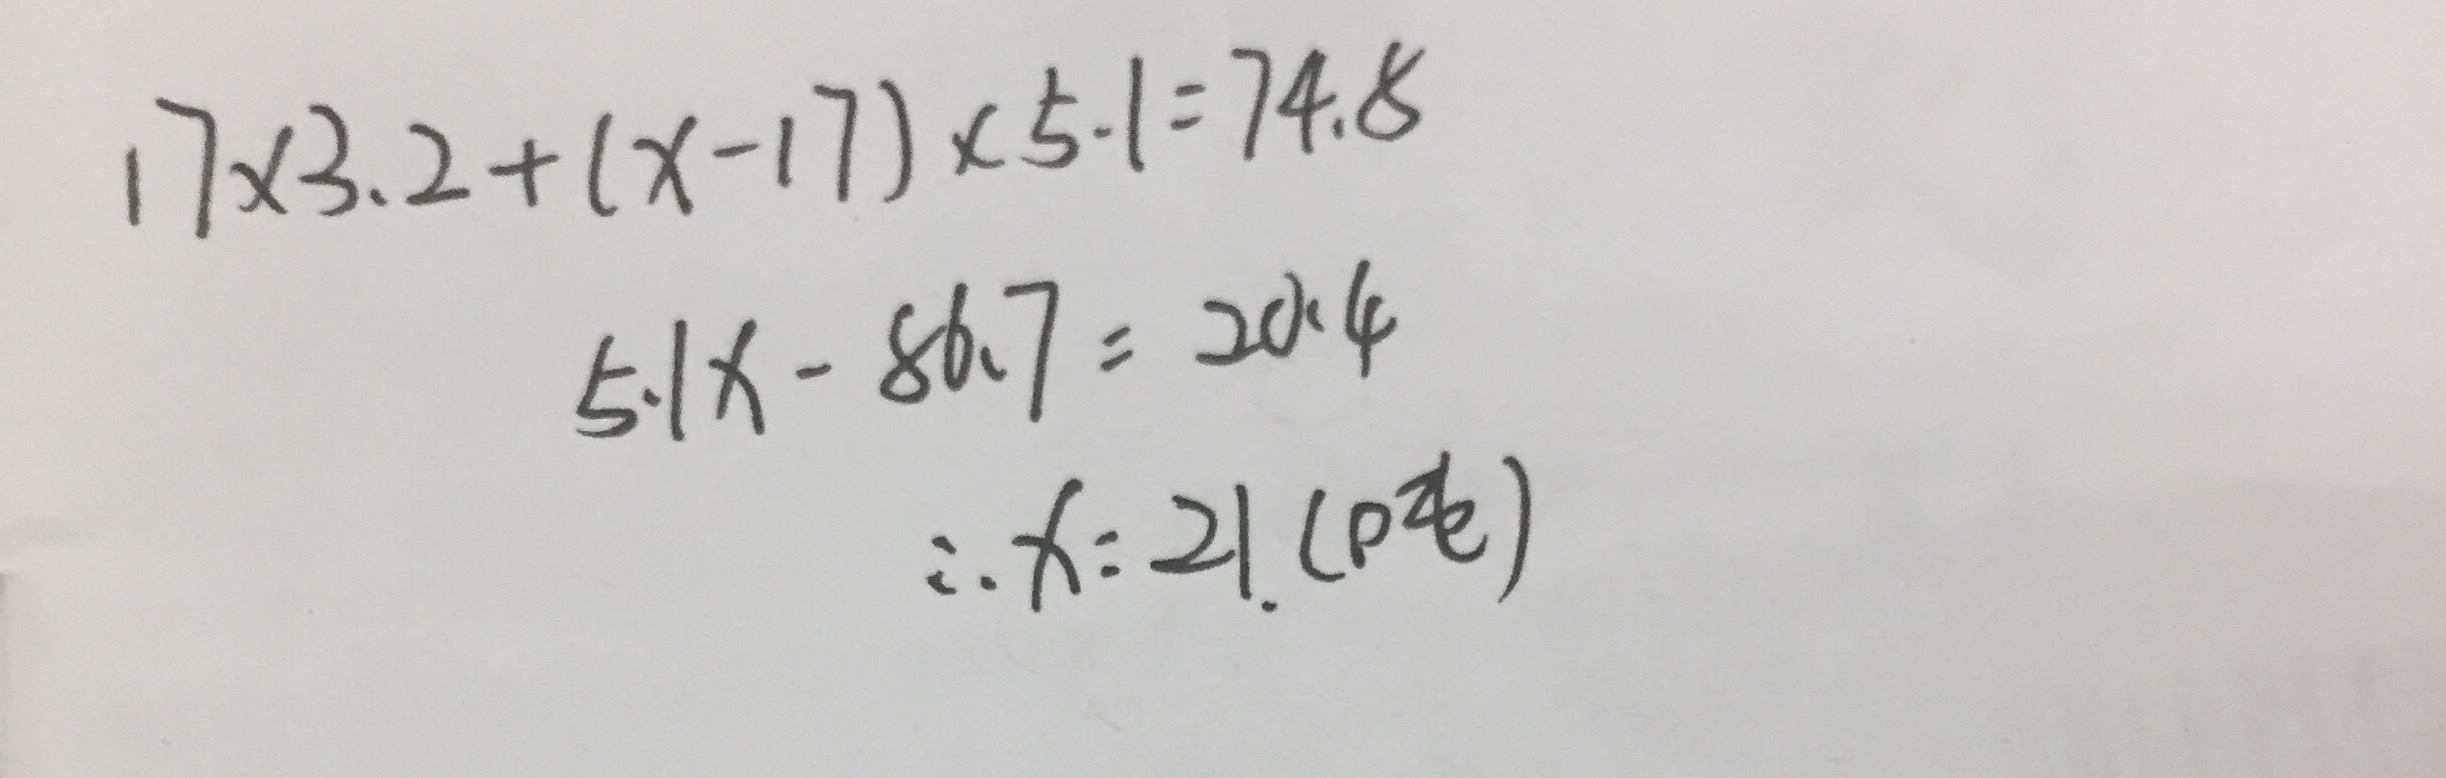 17×3.2+(x-17)×5.1=74.8
5.1x-86.7=20.4
∴x=21.(吨)